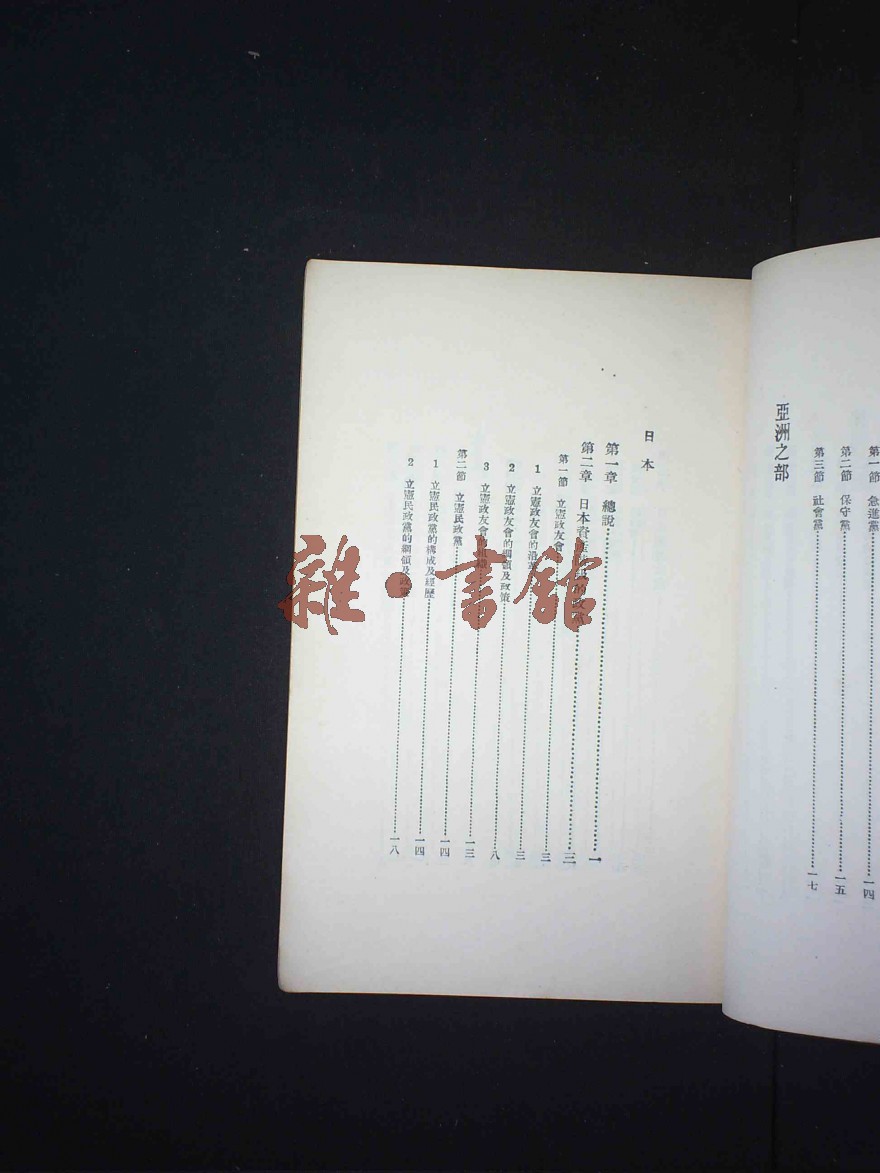 第一節 急進黨 一四
第二節 保守黨 一五
第三節 社會黨 一七
亞洲之部
日本
第一章 總說 一
第二章 日本資 的政黨 三
第一節 立憲政友會 三
1 立憲政友會的沿革 三
2 立憲政友會的綱領及政策 八
3 立憲政友會的組織 一三
第二節 立憲民政黨 一四
1 立憲民政黨的構成及經歷 一四
2 立憲民政黨的綱領及政策 一八
雜·書館